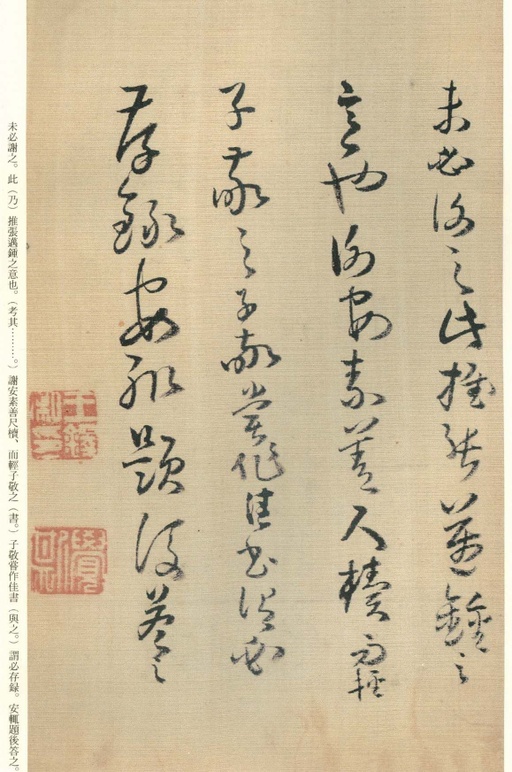 未必謝之此推張邁鍾之
意也謝安素善尺牘而輕
子敬之子敬嘗作佳書謂必
存錄安輒題後答之
未必謝之。此（乃）推張邁鍾之意也。（考其………。）謝安素善尺牘，而輕子敬之（書。）子敬嘗作佳書（與之。）謂必存録。安輒題後答之。